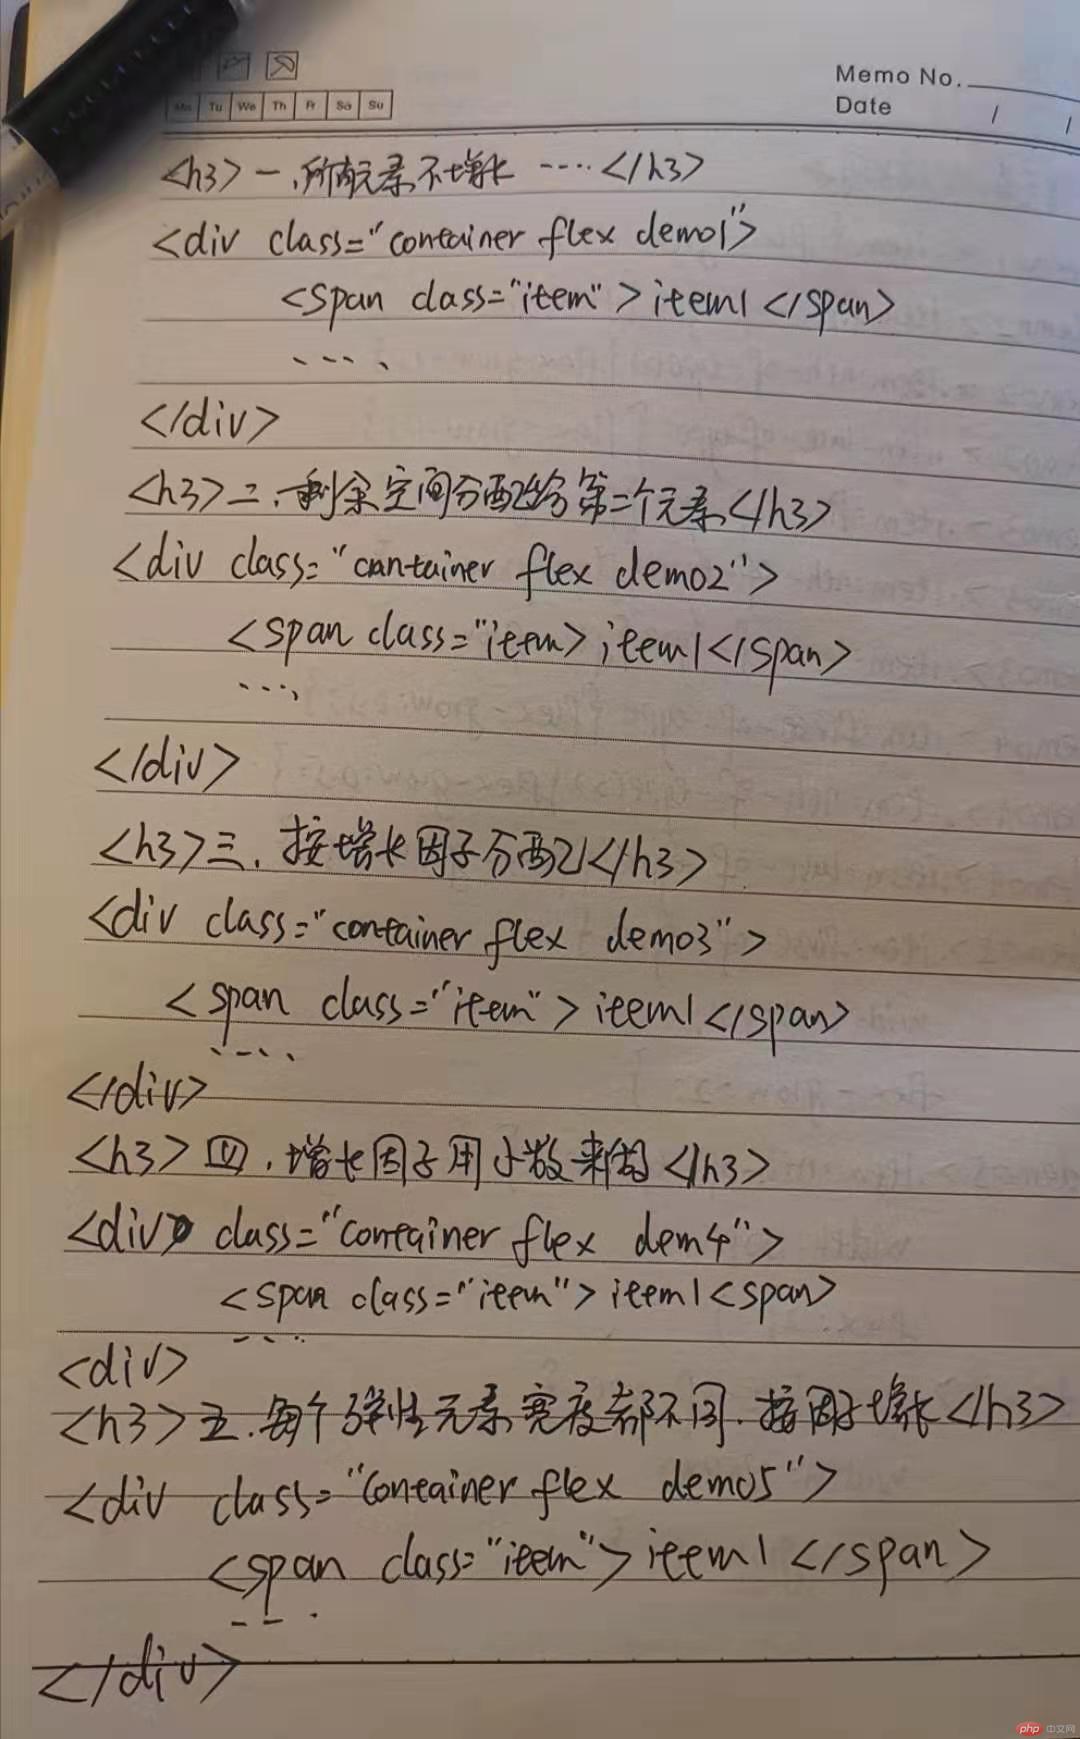 Memo No.
Mo Tu We Th Fr Sa Su
Date / /
<h3>一、所有元素不增长 ····</h3>
<div class="container flex demo1">
<span class="item">item1</span>
····
</div>
<h3>二、剩余空间分配给第二个元素</h3>
<div class="cantainer flex demo2">
<span class="item>item1</span>
····
</div>
<h3>三、按增长因子分配</h3>
<div class="container flex demo3">
<span class="item">item1</span>
····
</div>
<h3>四、增长因子用小数来做</h3>
<div class="container flex dem4">
<span class="item">item1<span>
···
<div>
<h3>五、每个弹性元素宽度都不同、按因子增长</h3>
<div class="container flex demo5">
<span class="item">item1</span>
···
</div>
php 中文网